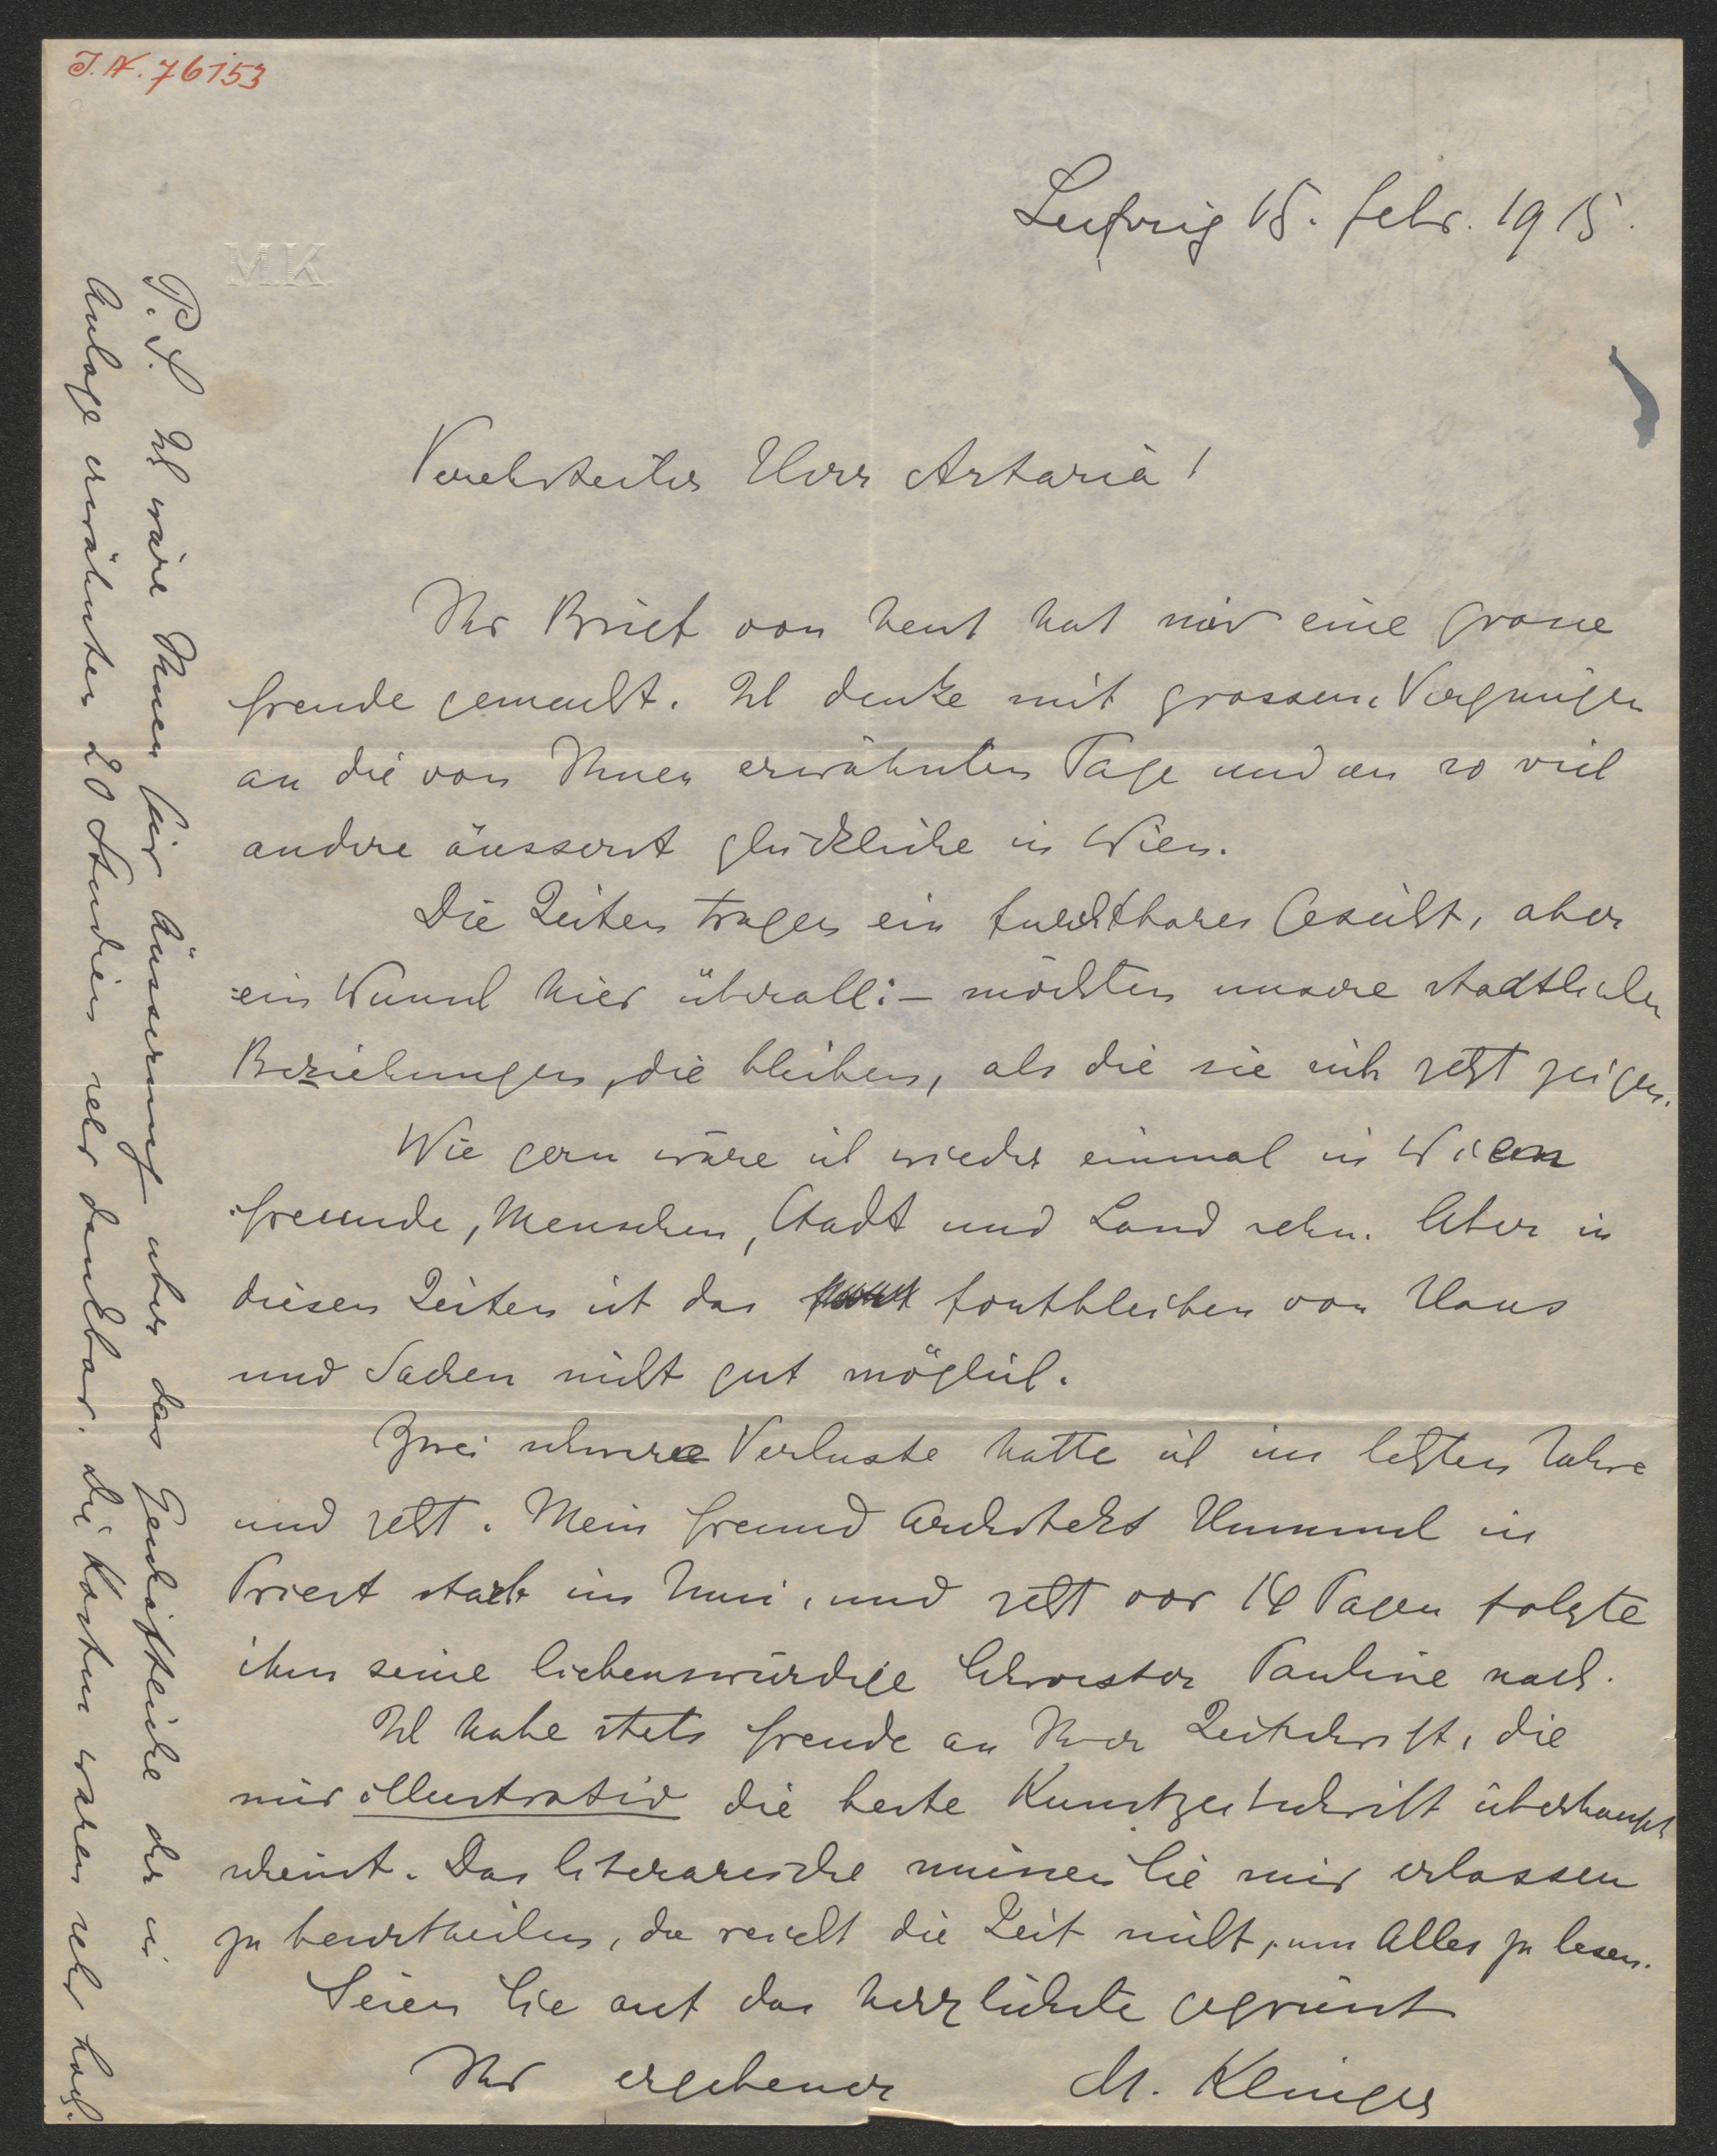 J.N. 76153
Leipzig 15. Febr. 1915.
MK
Verehrtester Herr Artaria!
Ihr Brief von heut hat mir eine grosse
Freude gemacht. Ich denke mit grossem Vergnügen
an die von Ihnen erwähnten Tage und an so viel
andere äusserst glückliche in Wien.
Die Zeiten tragen ein furchtbares Gesicht, aber
ein Wunsch hier überall: – möchten unsere staatlichen
Beziehungen, die bleiben, als die sie sich jetzt zeigen.
Wie gern wäre ich wieder einmal in Wien
Freunde, Menschen, Stadt und Land sehn. Aber in
diesen Zeiten ist das fortbleiben von Haus
und Sachen nicht gut möglich.
Zwei schwere Verluste hatte ich im letzten Jahre
und jetzt. Mein Freund Architekt Hummel in
Triest starb im Juni, und jetzt vor 14 Tagen folgte
ihm seine liebenswürdige Schwester Pauline nach.
Ich habe stets Freude an Ihrer Zeitschrift, die
mir illustrativ die beste Kunstzeitschrift überhaupt
scheint. Das literarische müssen Sie mir erlassen
zu beurtheilen, da reicht die Zeit nicht, um Alles zu lesen.
Seien Sie auf das herzlichste gegrüsst
Ihr ergebener M. Klinger
P.S. Ich wäre Ihnen für Äusserung über das Geschäftliche der in
Anlage erwähnten 20 Studien sehr dankbar. Die Kosten waren sehr hoch.